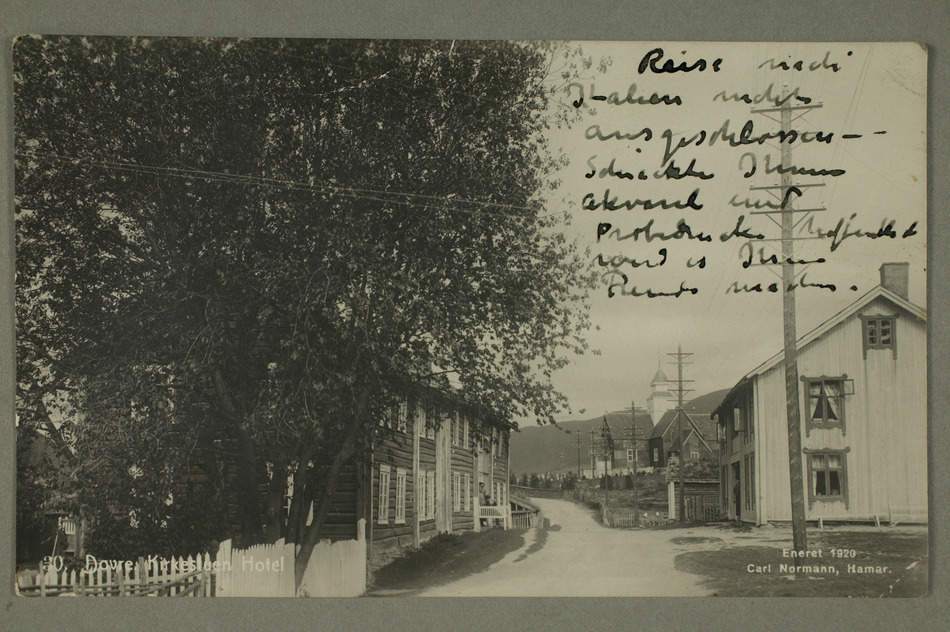 Reise nach
Italien nicht
ausgeschlossen--
Schickte Ihnen
und
Probedrucke hoffentlich
wird es Ihnen
Freude machen.
30. Dovre. Kirkestuen Hotel
Eneret 1920
Carl Normann, Hamar.